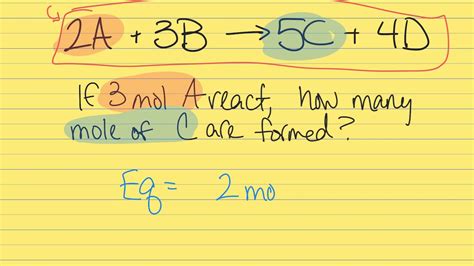 2A + 3B → 5C + 4D
If 3 mol A react, how many
mole of C are formed?
Eq = 2 mo